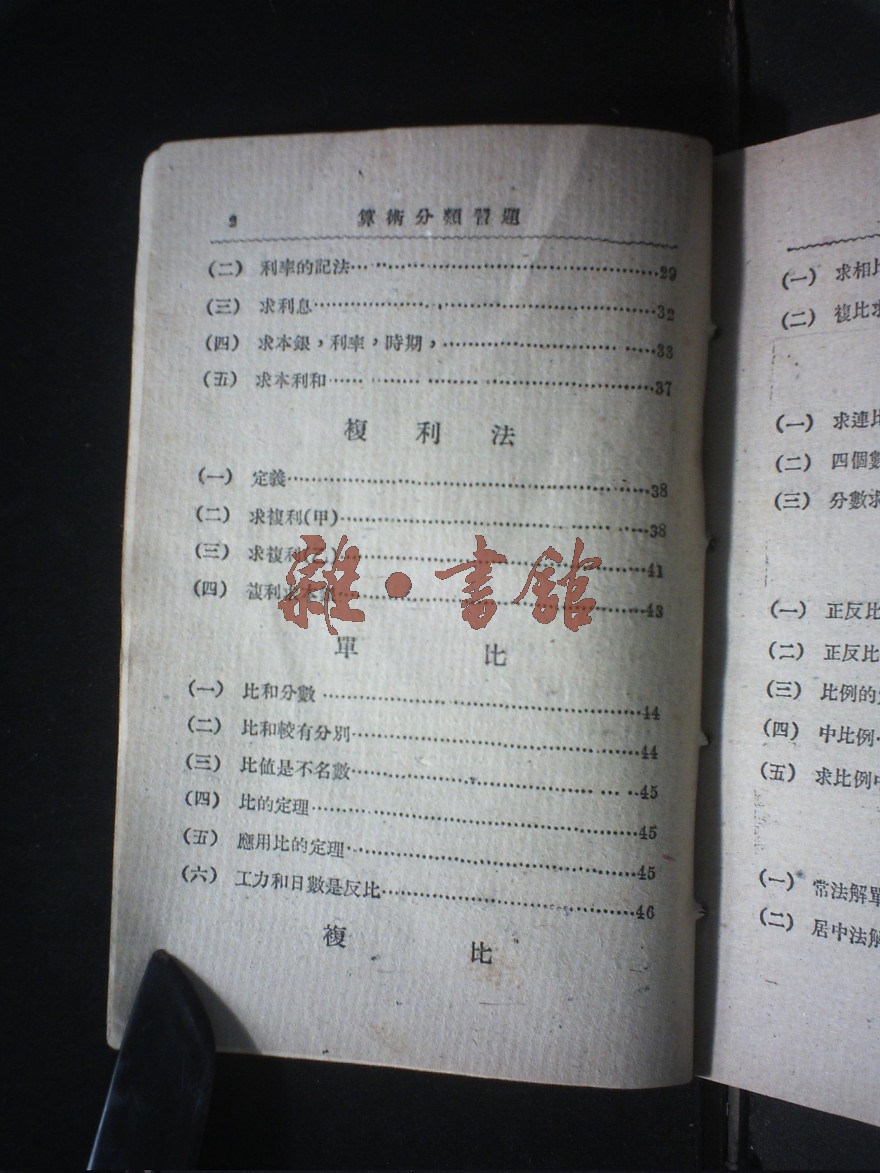 2 算術分類習題
(二) 利率的記法……29
(三) 求利息……32
(四) 求本銀，利率，時期，……33
(五) 求本利和……37
複利法
(一) 定義……38
(二) 求複利(甲)……38
(三) 求複利(乙)……41
(四) 複利求本……43
雜·書館
單比
(一) 比和分數……44
(二) 比和較有分別……44
(三) 比值是不名數……45
(四) 比的定理……45
(五) 應用比的定理……45
(六) 工力和日數是反比……46
複比
(一) 求相比
(二) 複比求
(一) 求連比
(二) 四個數
(三) 分數求
(一) 正反比
(二) 正反比
(三) 比例的
(四) 中比例
(五) 求比例中
(一) 常法解單
(二) 居中法解